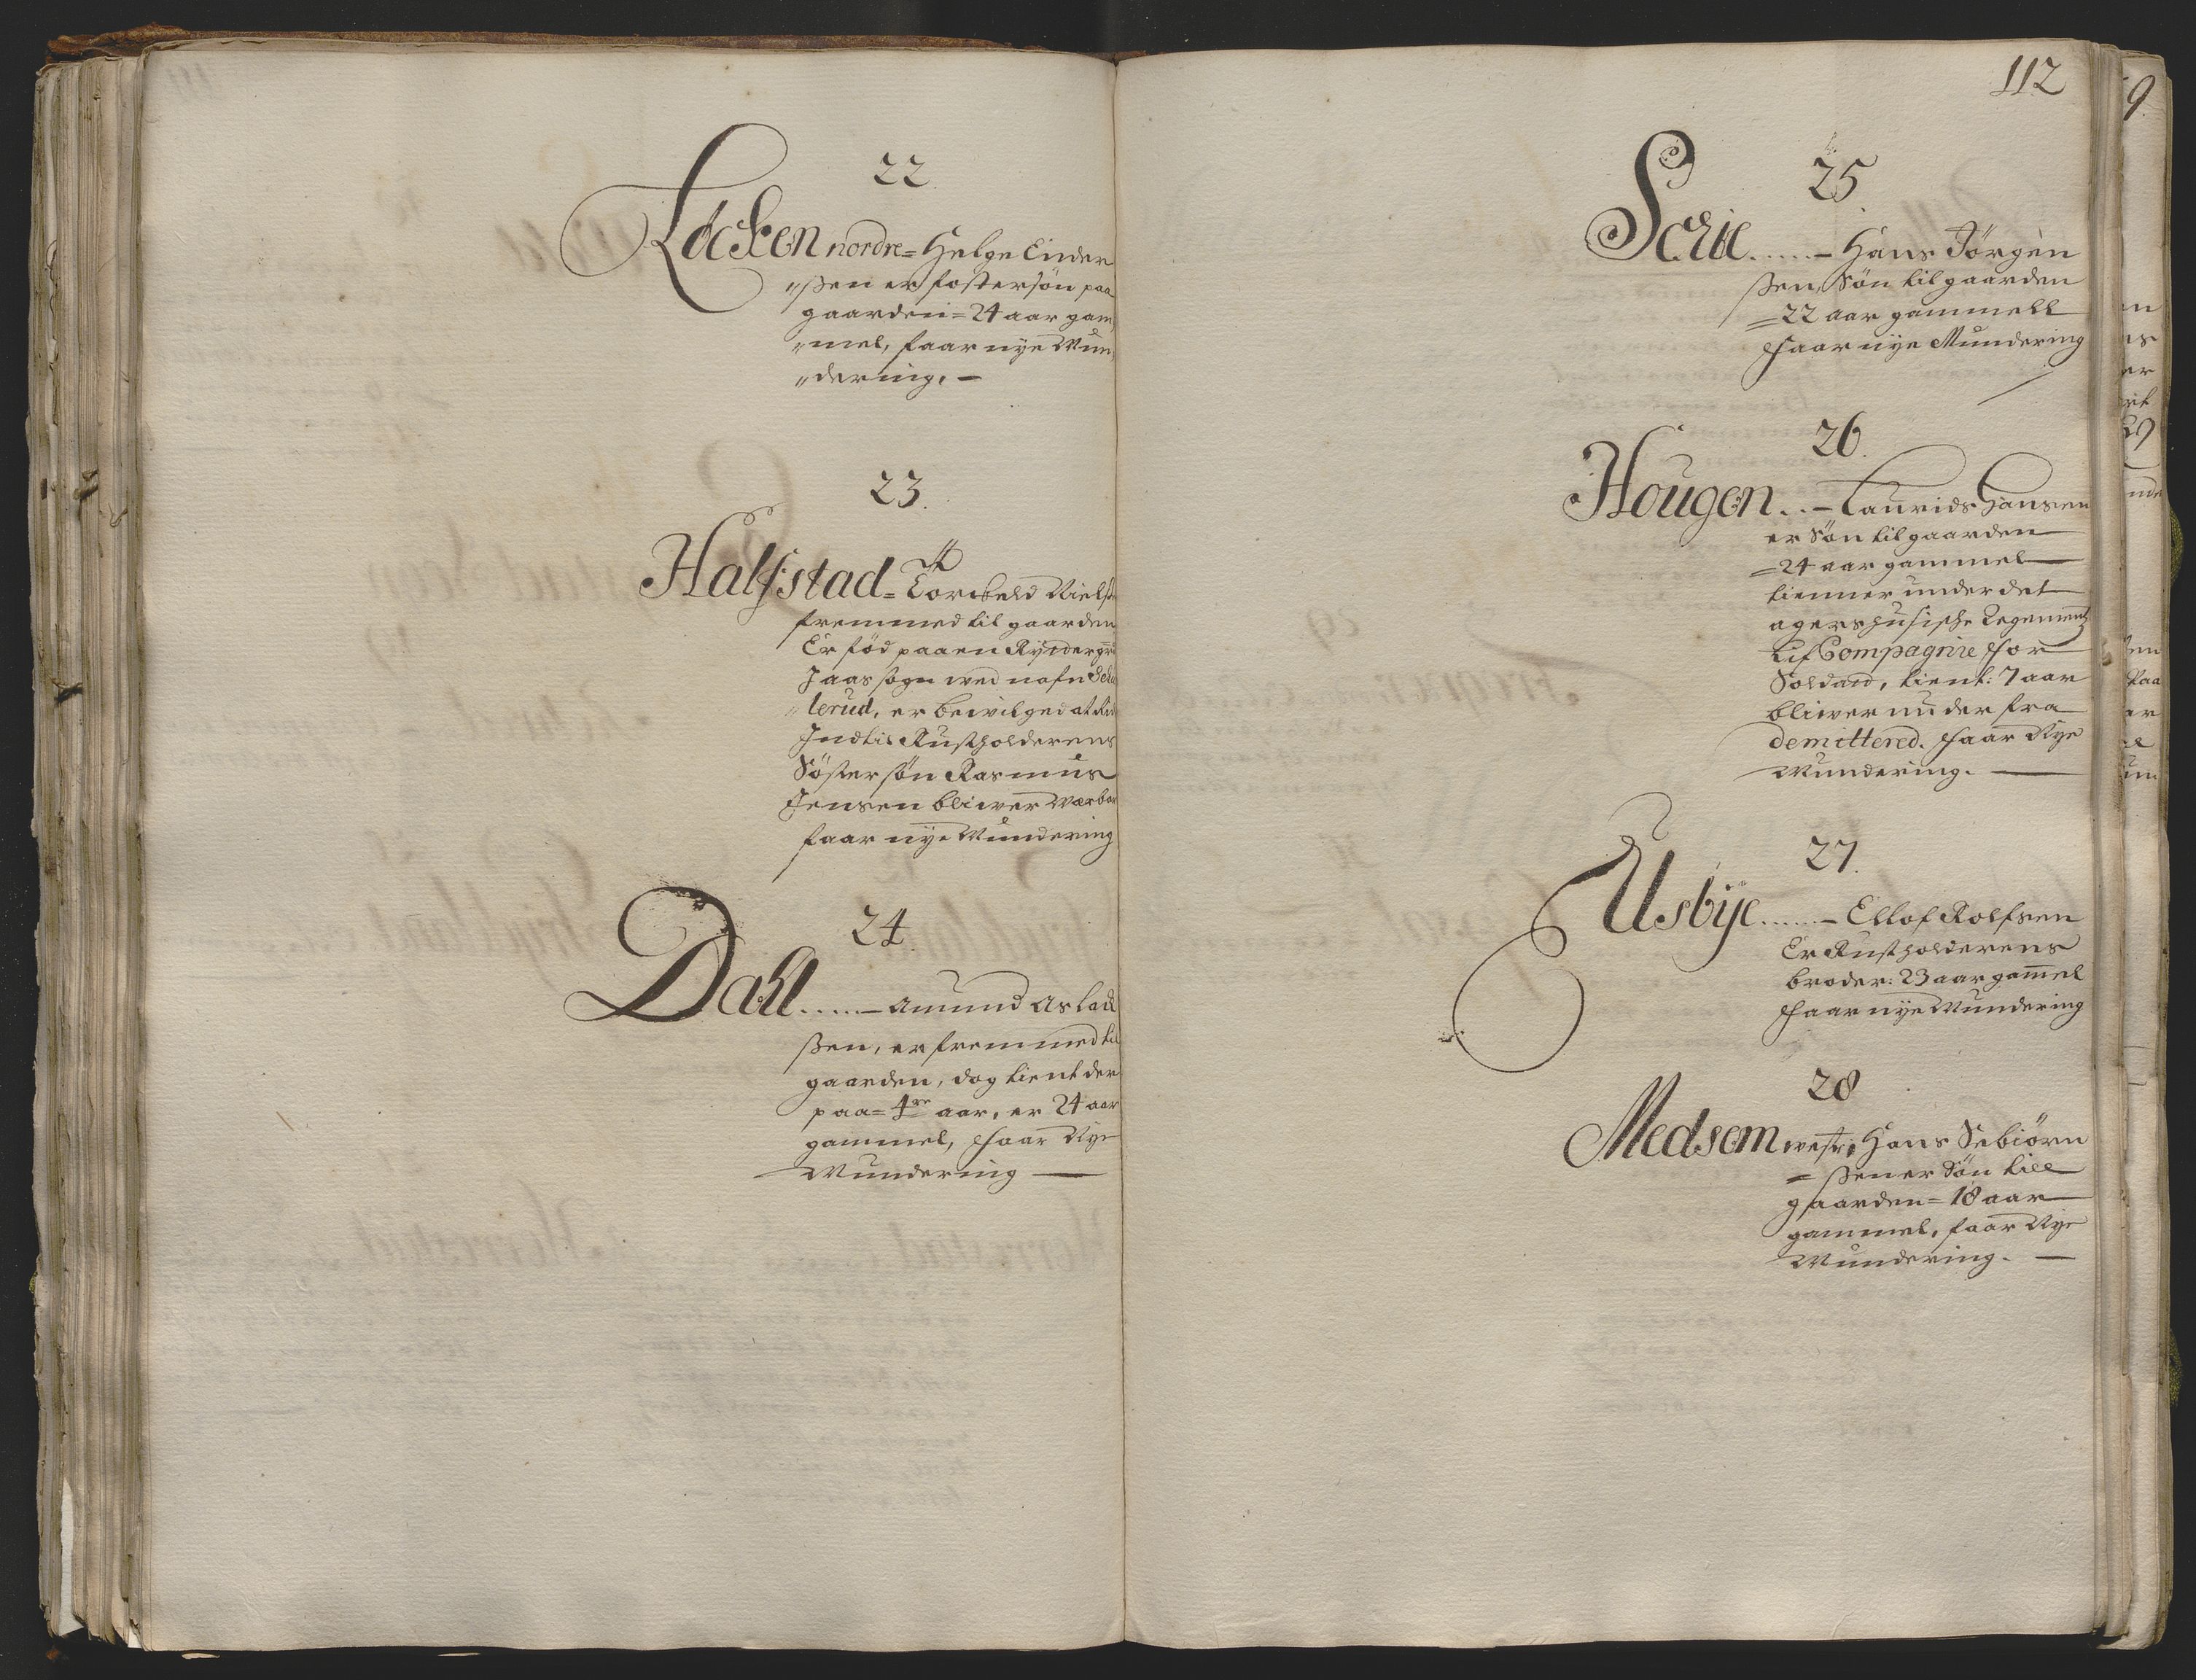 22
Løcken nordre= Helge Einder
„ßen er fostersøn paa
gaarden= 24 aar gam
„mel, faar nye Mun
„dering. —
23.
Halfstad= Torkeld Niels
fremmed til gaarden
Er fød paa en Rytter
J Aas sogn ved nafn
lerud, er bevilged at
Indtil Rustholderens
Søster søn Rasmus
Jensen bliwer
faar nye Mundering
24.
Dahl.....— Amund Aslack
ßen, er fremmed til
gaarden, dog tient der
paa= 4re aar, er 24 aar
gammel, Faar Nye
— Mundering —
112
25
Schie.....— Hans Jørgen
ßen, Søn til gaarden
=22 aar gammell
Faar nye Mundering
26.
Hougen..— Laurids Hansen
er Søn til gaarden
=24 aar gammel
tienner under det
agershusische Regement
Lif Compagnie for
Soldat, tient: 7 aar
bliwer nu der fra
demittered. Faar Nye
Mundering. —
27.
Usbÿe.....— Ellof Rolfsen
Er Rustholderens
broder: 23 aar gam̄el
Faar nye Mundering
28
Medsem westr: Hans Sebiørn
= ßen er Søn till
gaarden= 18 aar
gammel, faar Nye
Mundering. —